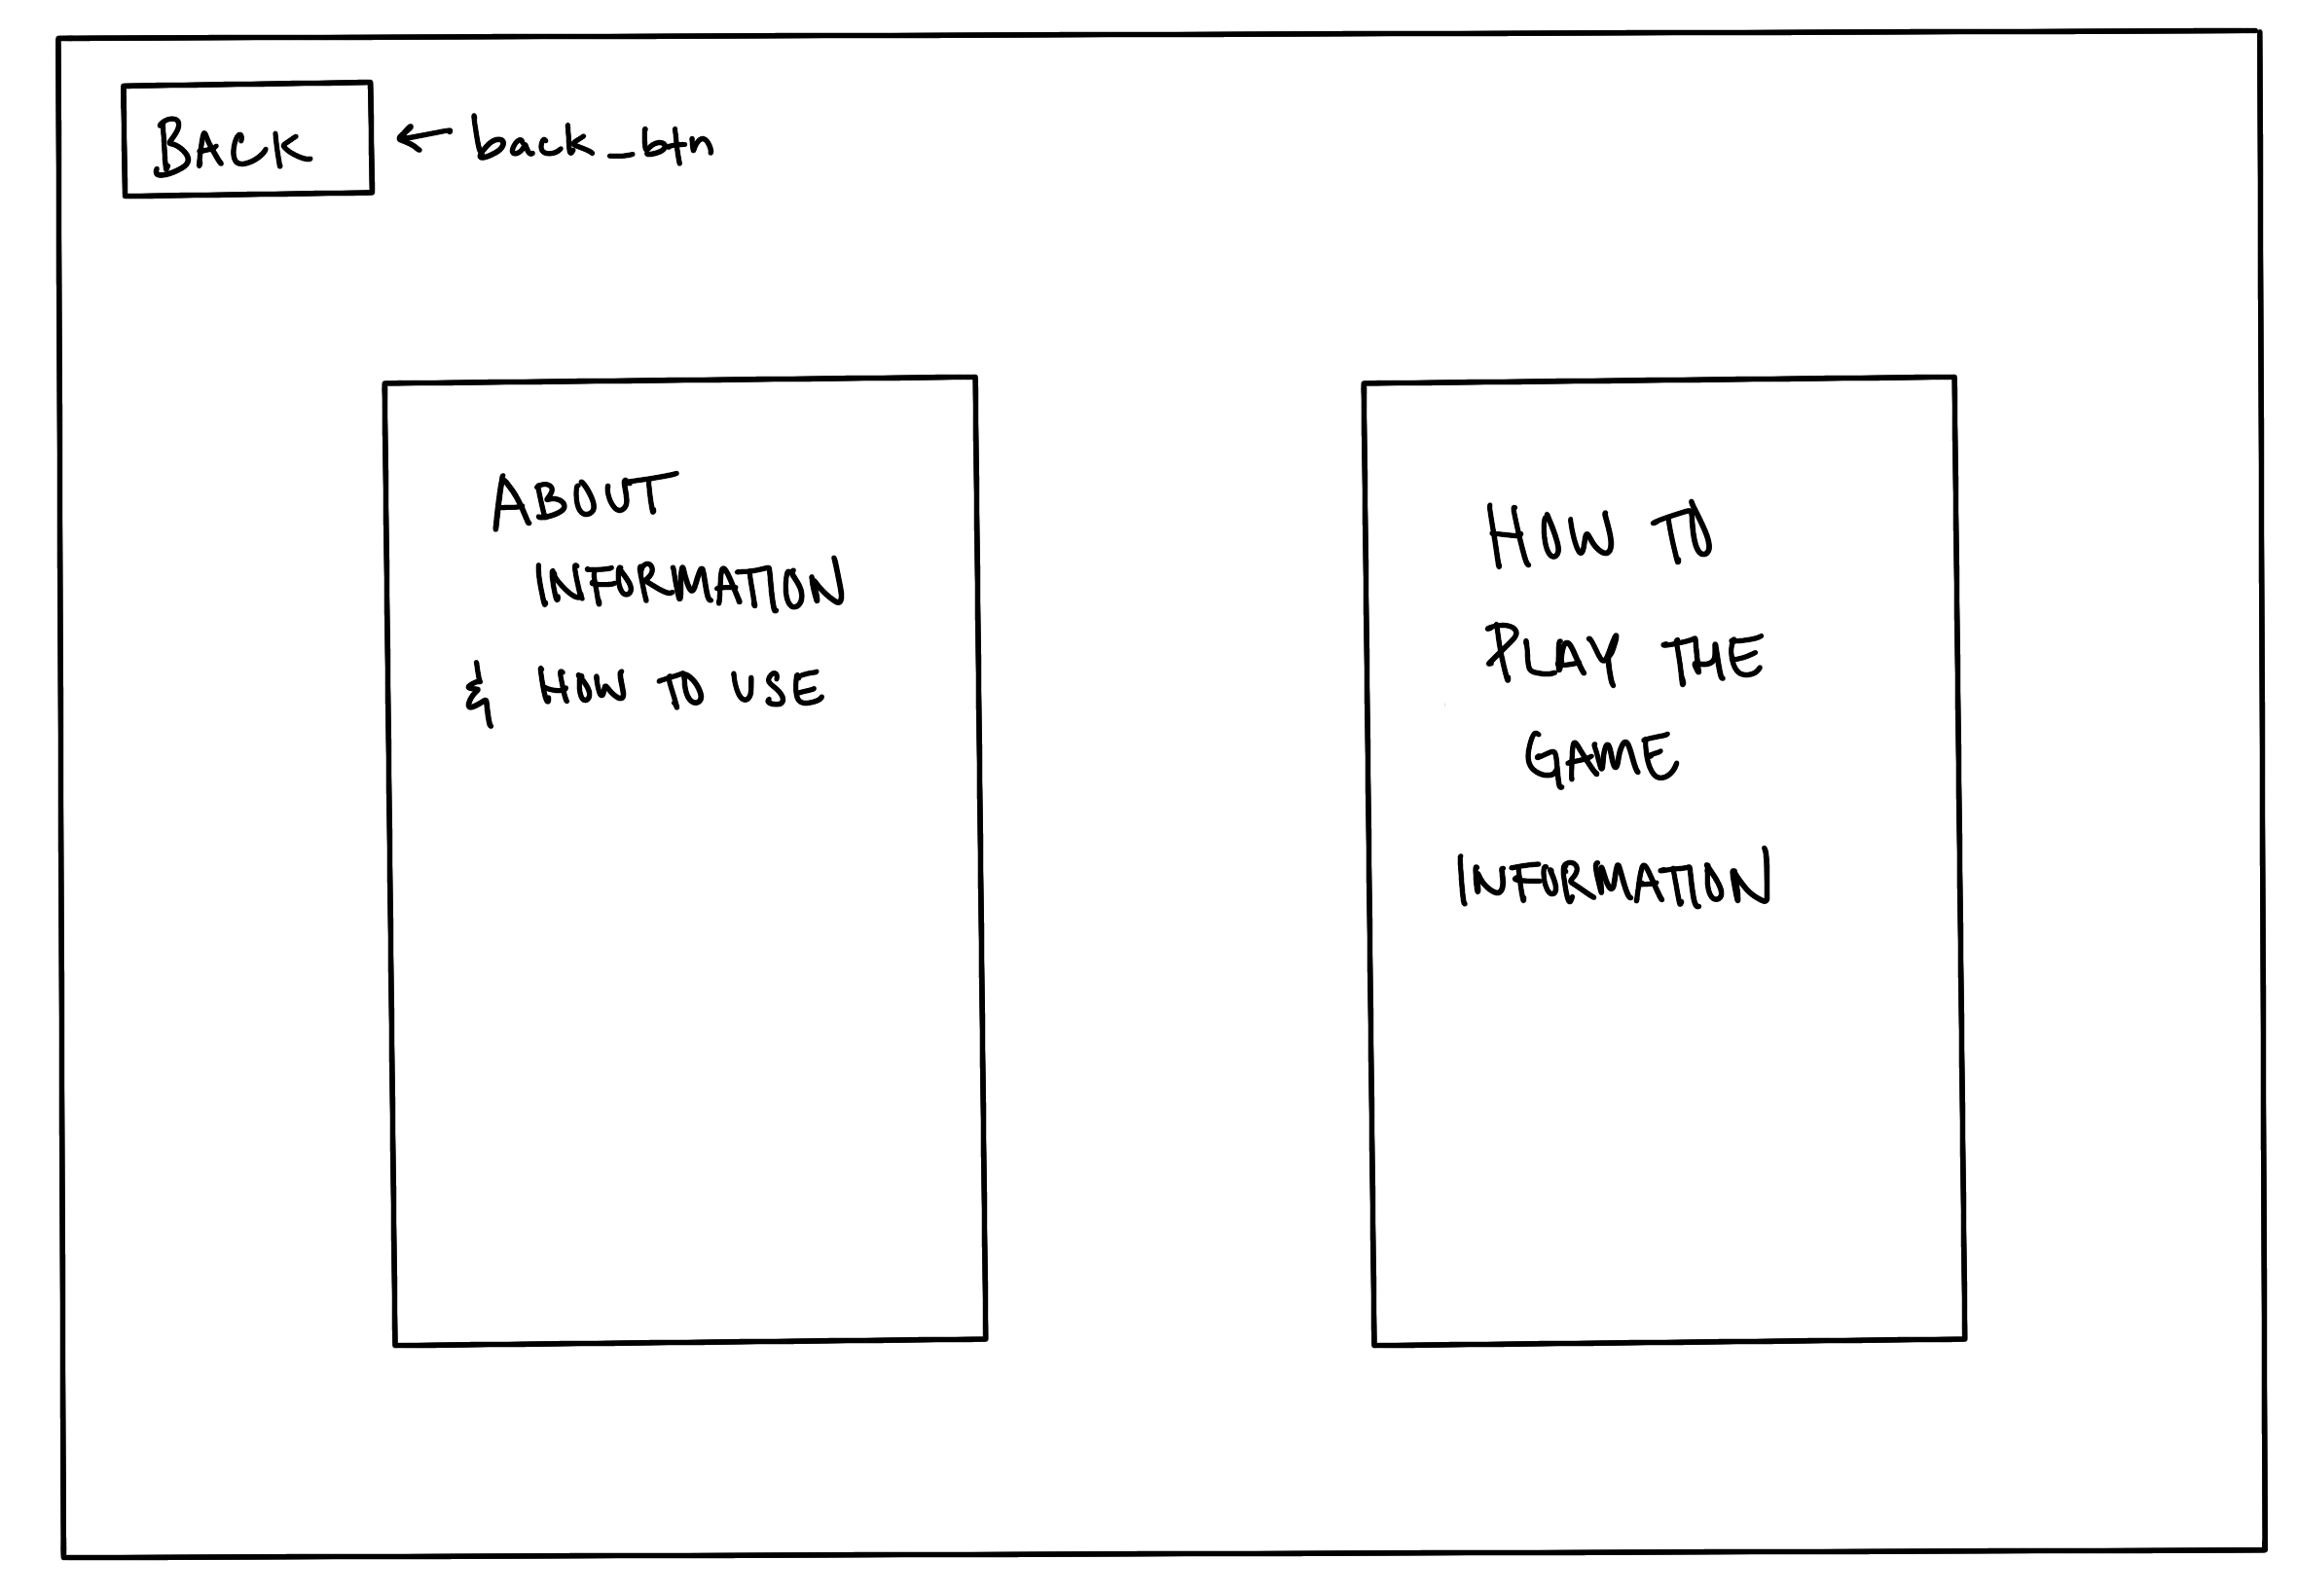 BACK
← back_btn
ABOUT
INFORMATION
& HOW TO USE
HOW TO
PLAY THE
GAME
INFORMATION